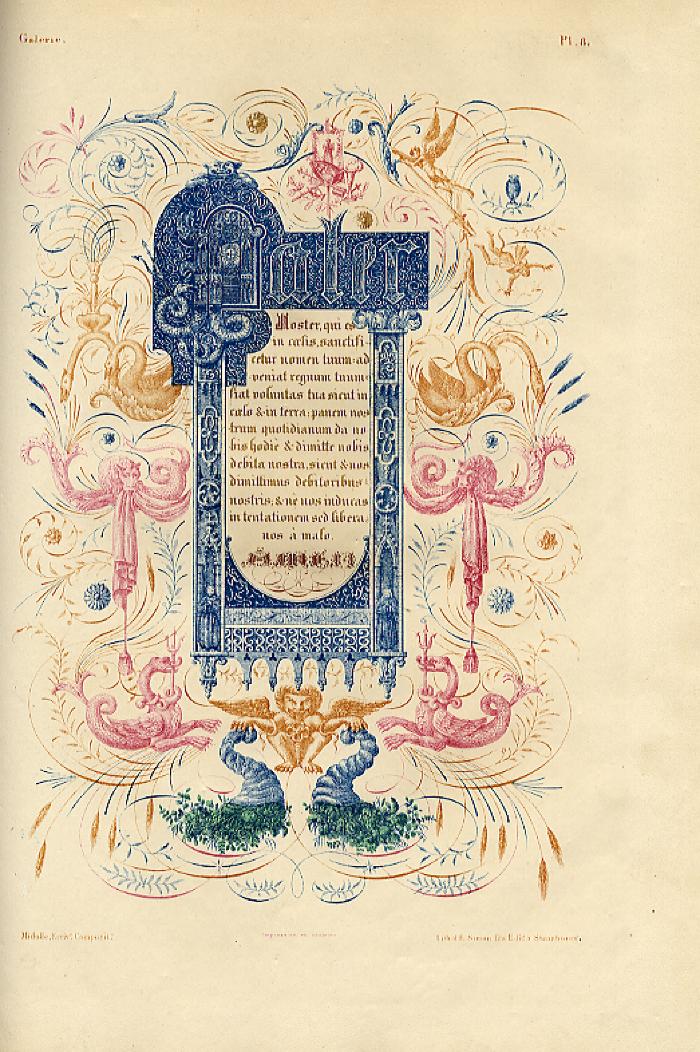 Galerie.
Pl. 8.
Pater
Noster, qui es
in cœlis, sanctifi-
cetur nomen tuum: ad
veniat regnum tuum:
fiat voluntas tua sicut in
cœlo & in terra: panem nos
trum quotidianum da no
bis hodiè & dimitte nobis
debita nostra, sicut & nos
dimittimus debitoribus
nostris; & nè nos inducas
in tentationem sed libera
nos à malo.
Midolle, Compositᵗ
Lith. d'E. Simon fils Edit. à Strasbourg.